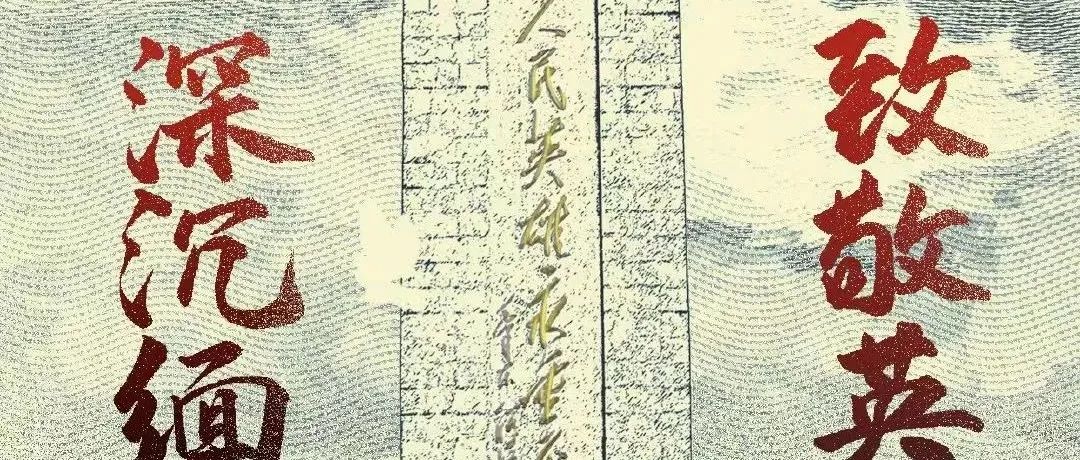 致敬英
人民英雄永垂
深沉缅